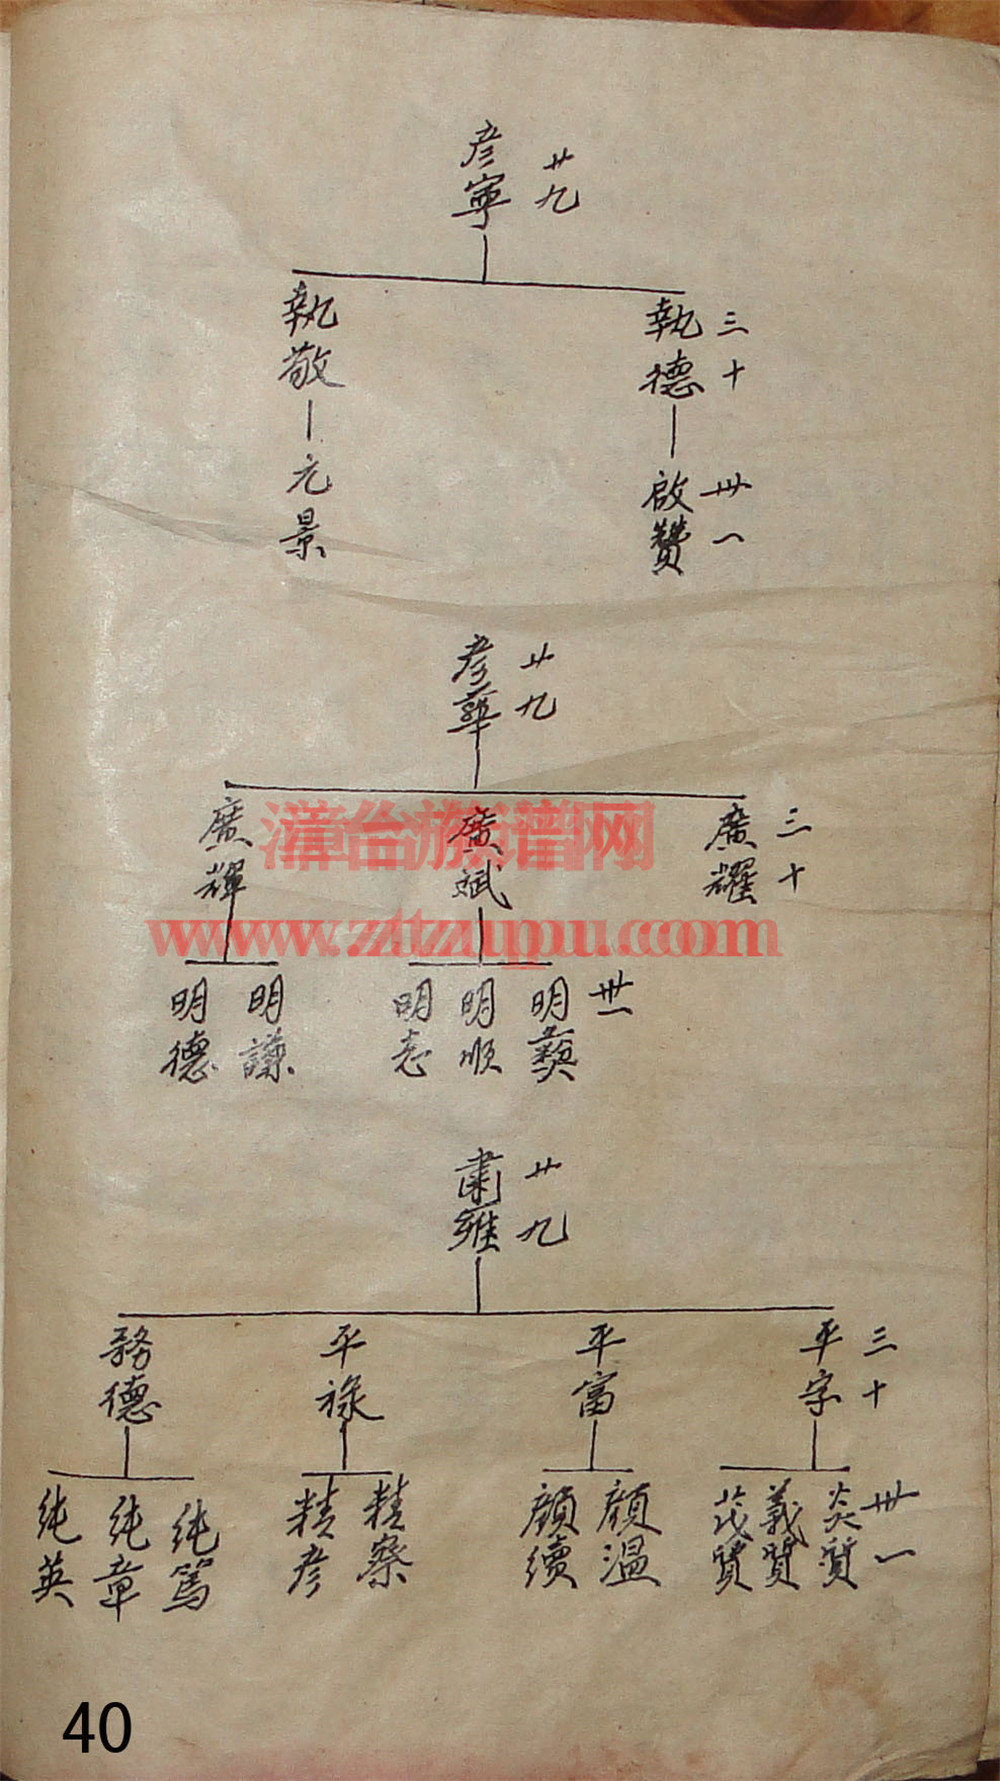 廿九
彦寧
三十
執德
執敬
卅一
啟贊
元景
廿九
彦華
三十
廣耀
廣斌
廣輝
漳台族谱网
www.ztzupu.com
卅一
明彝
明順
明志
明謙
明德
廿九
肅雍
三十
平字
平富
平祿
務德
卅一
炎賢
義賢
茂賢
顏溫
顏續
精察
精彦
纯篤
纯章
纯英
40